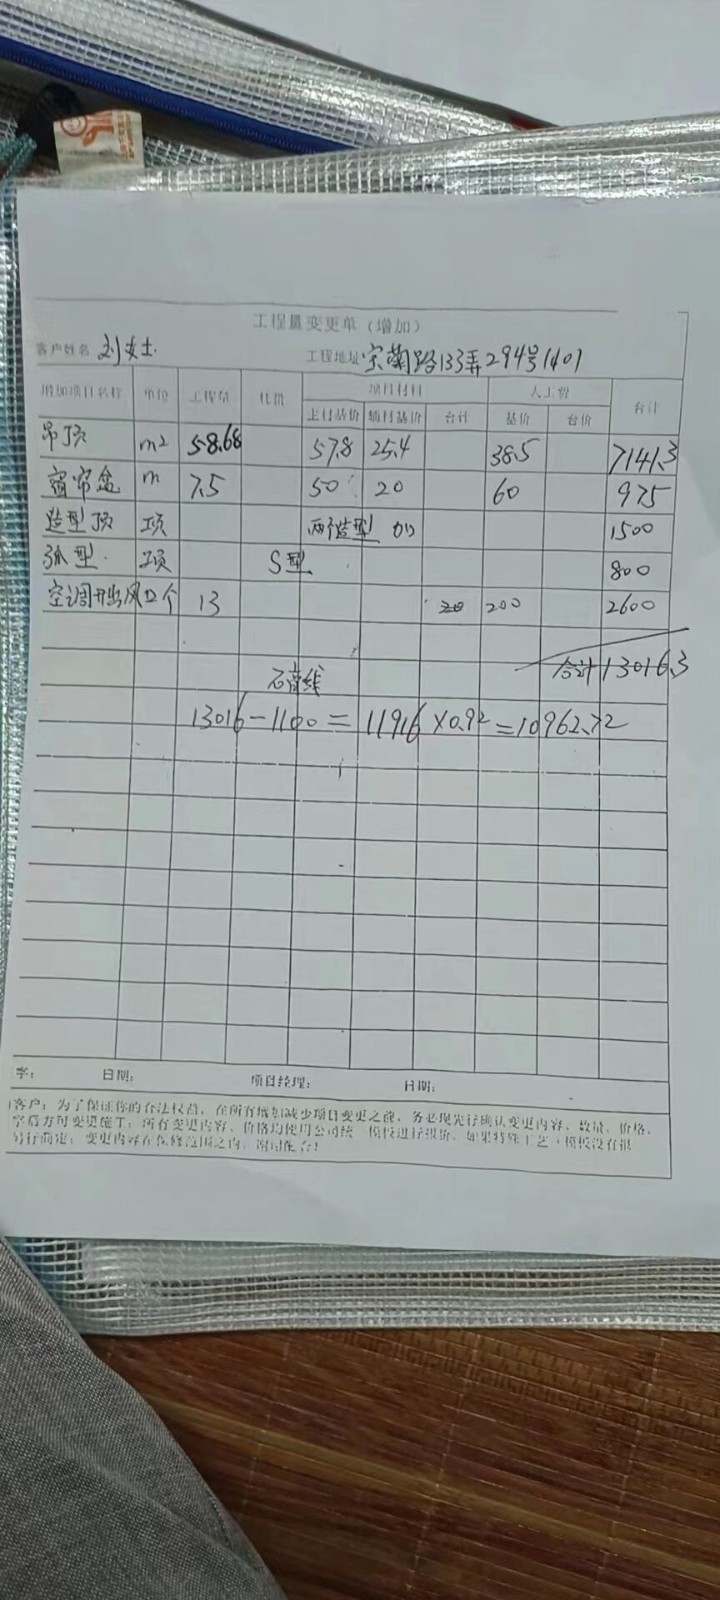 工程量变更单（增加）
客户姓名 刘女士 工程地址: 宗蘭路133弄294号1401
增加项目名称 单位 工程量 代价 项目材料 人工费 合计
主材基价 辅材基价 合计 基价 合价
吊顶 m2 58.68 57.8 25.4 38.5 7141.3
窗帘盒 m 7.5 50 20 60 975
造型顶 项 两个造型 1500
弧型 项 S型 800
空调开出风口 个 13 20 200 2600
合计 13016.3
石膏线
13016-1100=11916×0.92=10962.72
字: 日期: 项目经理: 日期:
客户: 为了保证你的合法权益, 在所有增加减少项目变更之前, 务必现先行确认变更内容、数量、价格,
字后方可变更施工; 所有变更内容、价格均使用公司统一模板进行报价, 如果特殊工艺模板没有报
另行商定; 变更内容在保修范围之内, 谢谢配合!